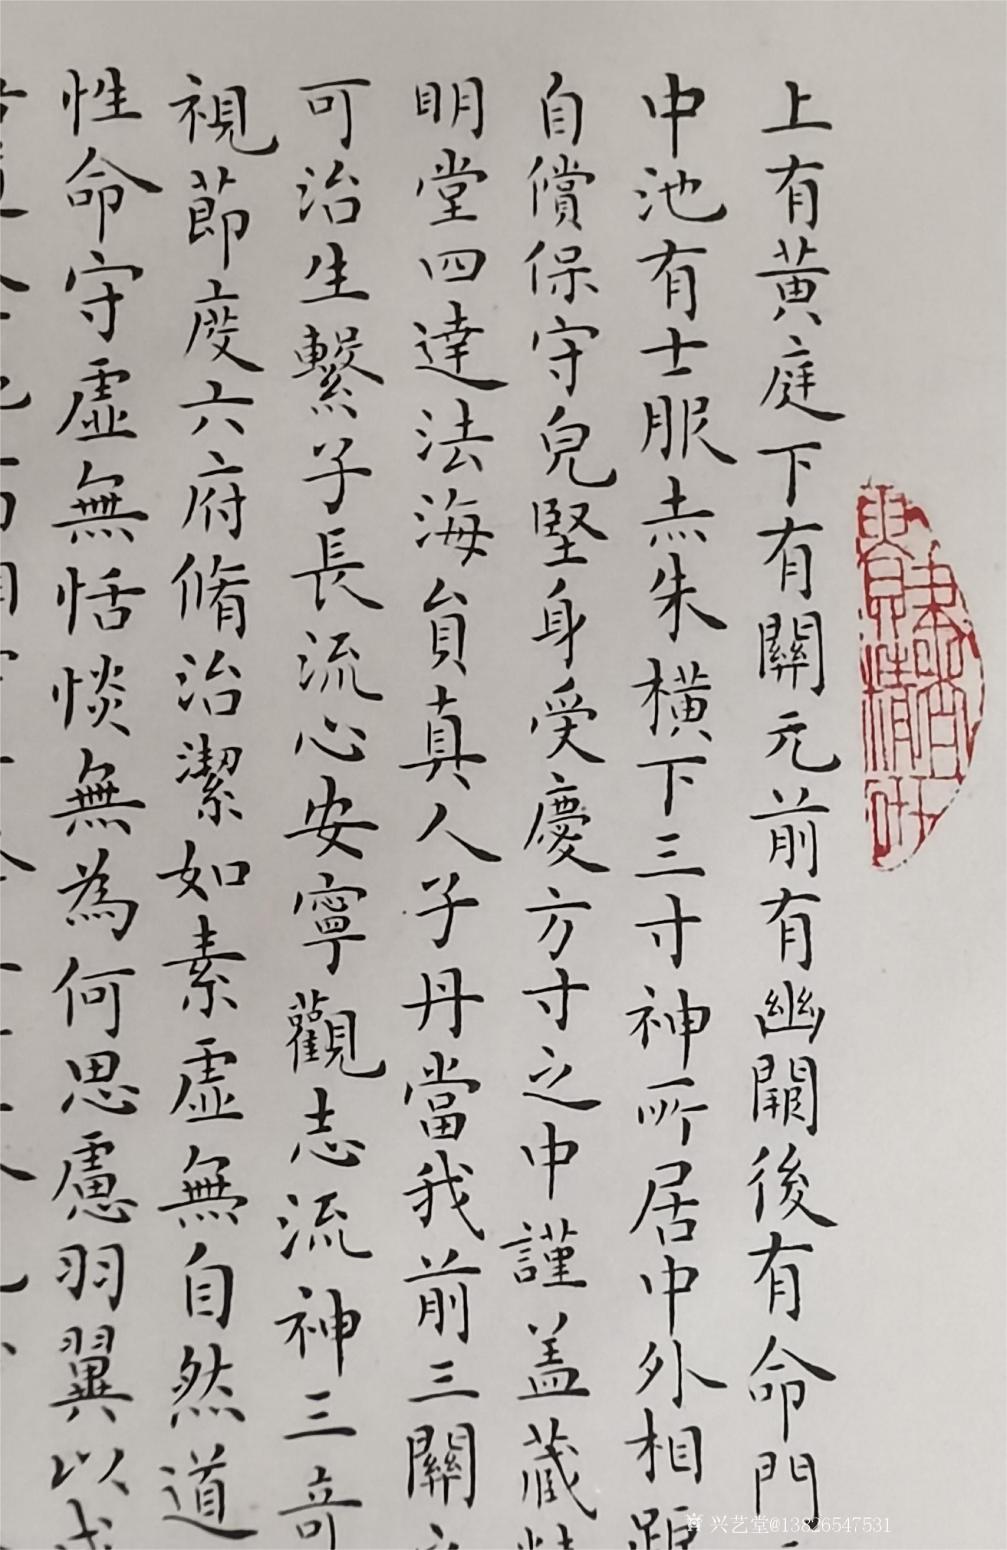 上有黃庭下有關元前有幽闕後有命門
中池有士服赤朱橫下三寸神所居中外相距
自償保守兒堅身受慶方寸之中謹盖藏
明堂四達法海員真人子丹當我前三關
可治生繫子長流心安寧觀志流神三奇
視節度六府脩治潔如素虛無自然道
性命守虛無恬惔無為何思慮羽翼以
兴艺堂@13826547531